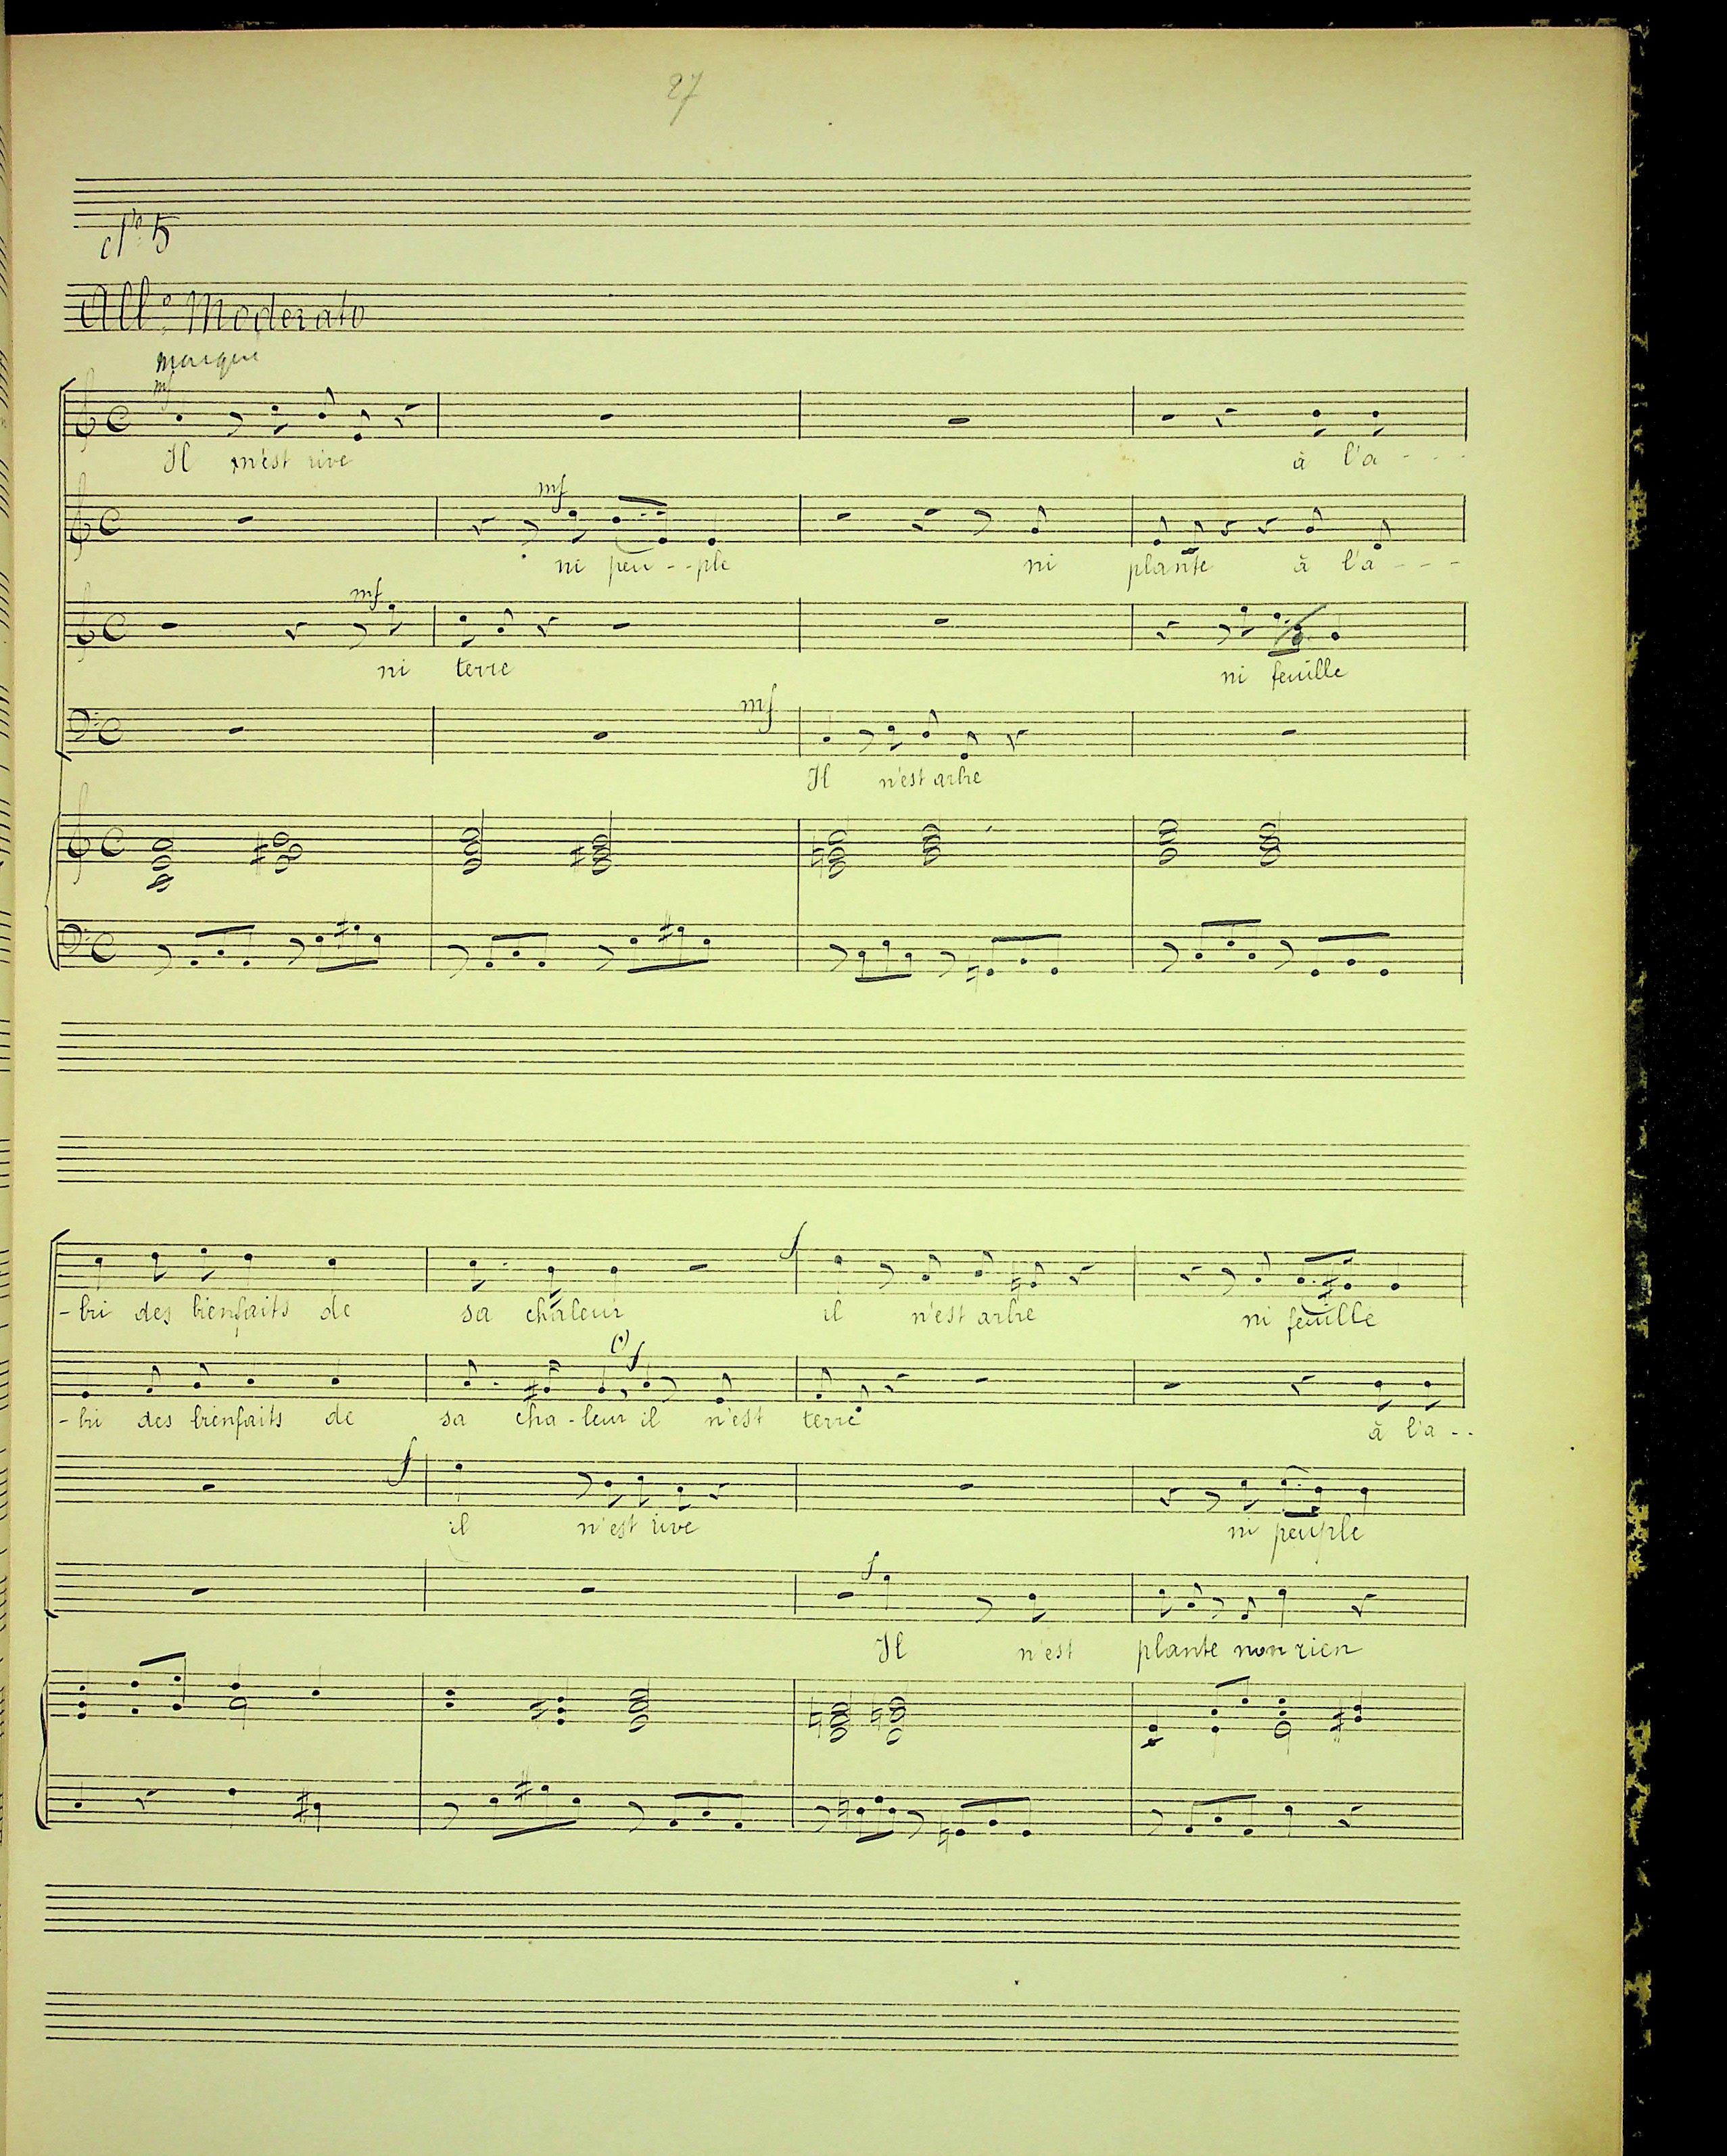 27
No 5
All.o Moderato
mf
Il n'est rive à l'a - - -
mf
ni peu - - ple ni plante à l'a - - -
mf
ni terre ni feuille
mf
Il n'est arbre
f
- bri des bienfaits de sa chaleur il n'est arbre ni feuille
f
- bri des bienfaits de sa cha - leur il n'est terre à l'a - -
f
il n'est rive ni peuple
f
Il n'est plante non rien